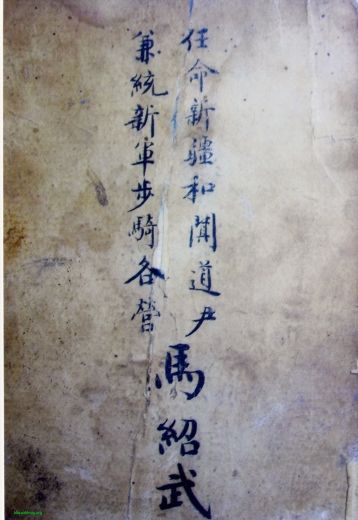 任命新疆和闐道尹
兼統新軍步騎各營
馬紹武